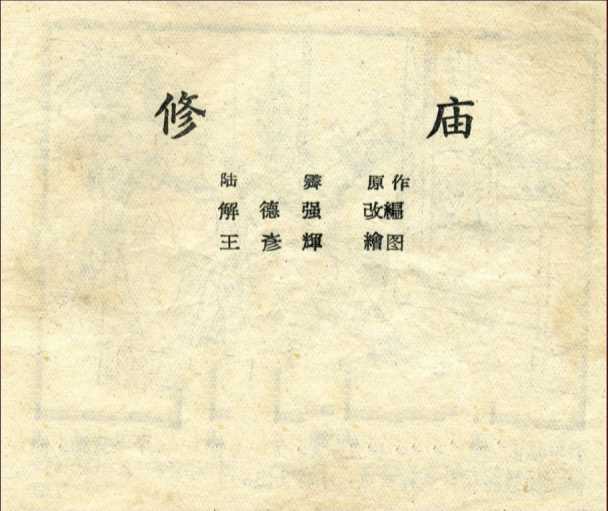 修庙
陆霁原作
解德强改編
王彦輝繪图